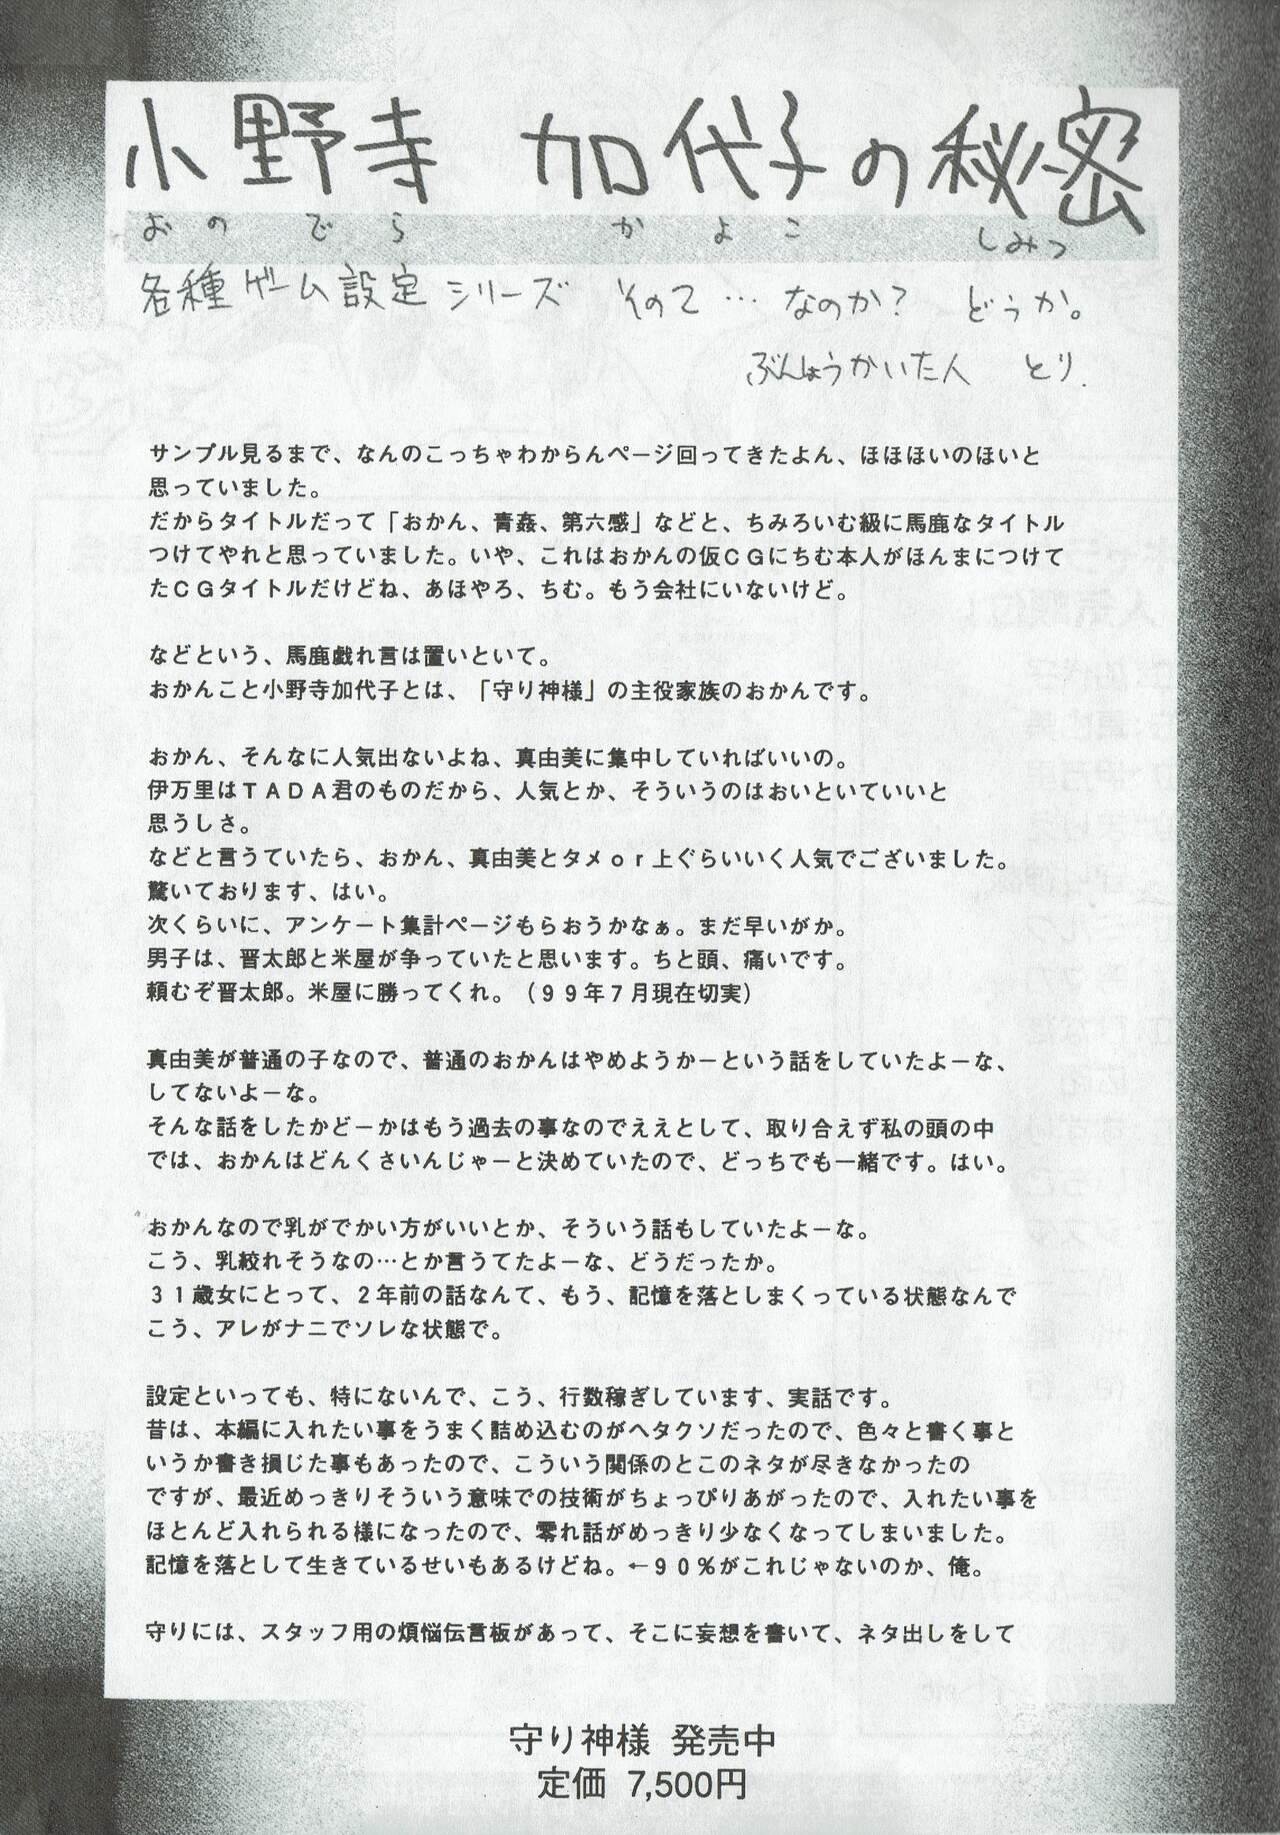 小野寺 加代子の秘密
おのでら かよこ しみつ
各種ゲーム設定シリーズ その2 … なのか? どぅか。
ぶんしょうかいた人 とり.
サンプル見るまで、なんのこっちゃわからんページ回ってきたよん、ほほほいのほいと
思っていました。
だからタイトルだって「おかん、青姦、第六感」などと、ちみろいむ級に馬鹿なタイトル
つけてやれと思っていました。いや、これはおかんの仮CGにちむ本人がほんまにつけて
たCGタイトルだけどね、あほやろ、ちむ。もう会社にいないけど。
などという、馬鹿戯れ言は置いといて。
おかんこと小野寺加代子とは、「守り神様」の主役家族のおかんです。
おかん、そんなに人気出ないよね、真由美に集中していればいいの。
伊万里はTADA君のものだから、人気とか、そういうのはおいといていいと
思うしさ。
などと言うていたら、おかん、真由美とタメor上ぐらいいく人気でございました。
驚いております、はい。
次くらいに、アンケート集計ページもらおうかなぁ。まだ早いがか。
男子は、晋太郎と米屋が争っていたと思います。ちと頭、痛いです。
頼むぞ晋太郎。米屋に勝ってくれ。(99年7月現在切実)
真由美が普通の子なので、普通のおかんはやめようかーという話をしていたよーな、
してないよーな。
そんな話をしたかどーかはもう過去の事なのでええとして、取り合えず私の頭の中
では、おかんはどんくさいんじゃーと決めていたので、どっちでも一緒です。はい。
おかんなので乳がでかい方がいいとか、そういう話もしていたよーな。
こう、乳絞れそうなの…とか言うてたよーな、どうだったか。
31歳女にとって、2年前の話なんて、もう、記憶を落としまくっている状態なんで
こう、アレがナニでソレな状態で。
設定といっても、特にないんで、こう、行数稼ぎしています、実話です。
昔は、本編に入れたい事をうまく詰め込むのがヘタクソだったので、色々と書く事と
いうか書き損じた事もあったので、こういう関係のとこのネタが尽きなかったの
ですが、最近めっきりそういう意味での技術がちょっぴりあがったので、入れたい事を
ほとんど入れられる様になったので、零れ話がめっきり少なくなってしまいました。
記憶を落として生きているせいもあるけどね。←90%がこれじゃないのか、俺。
守りには、スタッフ用の煩悩伝言板があって、そこに妄想を書いて、ネタ出しをして
守り神様 発売中
定価 7,500円